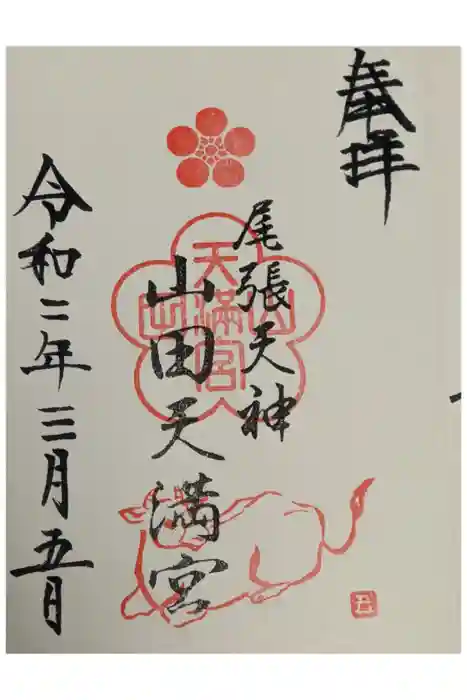 奉拝
尾張天神
山田天満宮
天満宮
山田
令和二年三月五日